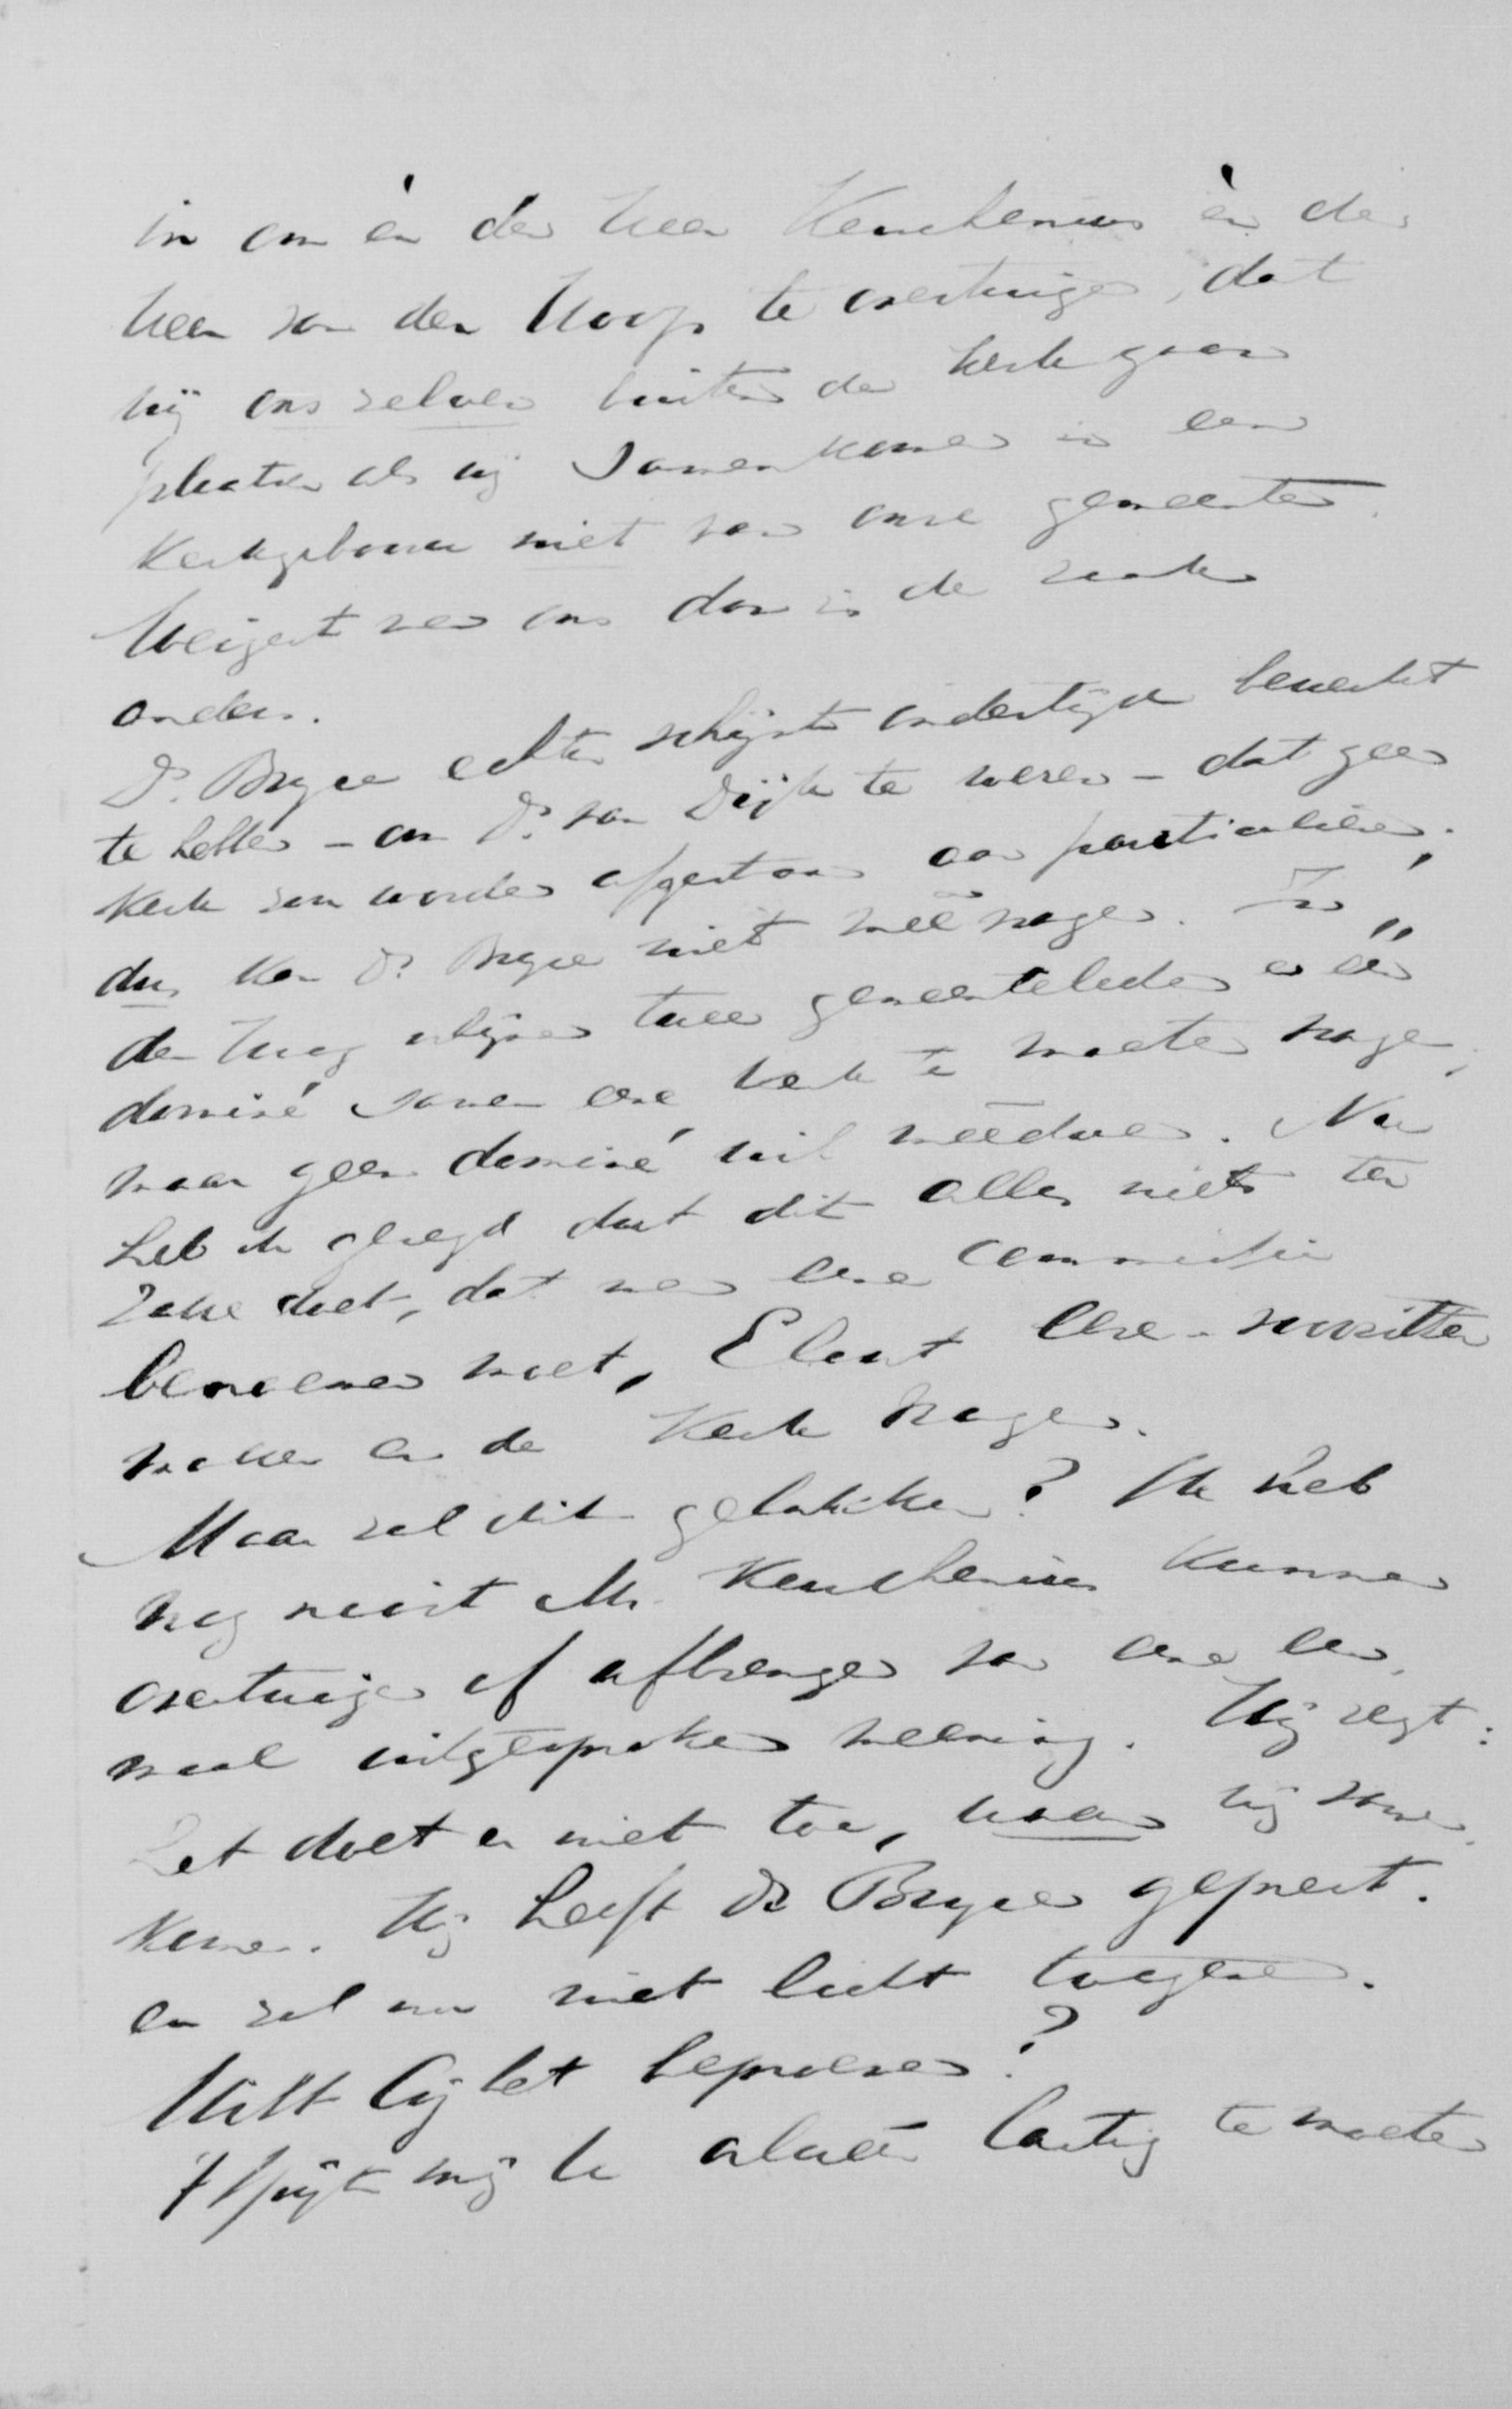 in om èn den heer Keuchenius èn den
heer van der Hoop te overtuigen, dat
wij ons zelven buiten de kerk gaan
plaatsen als wij samenkomen in een
kerkgebouw niet van onze gemeente.
Weigert men ons dan is de zaak
anders.
Ds. Bryce echter schijnt indertijd bewerkt
te hebben – om Ds. van Dijk te weren – dat geen
kerk zou worden afgestaan aan particulieren;
dus kan Ds Bryce niet meê vragen. In
den Haag schijnen twee gemeenteleden en één
dominé samen eene kerk te moeten vragen,
maar geen dominé wil meêdoen. Nu
heb ik gezegd dat dit alles niets ter
zake doet, dat men eene commissie
benoemen moet, Elout eere-voorzitter
maken en de kerk vragen.
Maar zal dit gelukken? Ik heb
nog nooit Mr. Keuchenius kunnen
overtuigen of afbrengen van eene een-
maal uitgesproken meening. Hij zegt:
het doet er niet toe, waar wij samen-
komen. Hij heeft Ds Bryce geprest.
en zal nu niet licht toegeven.
Wilt Gij het beproeven?
't Spijt mij U alweêr lastig te moeten